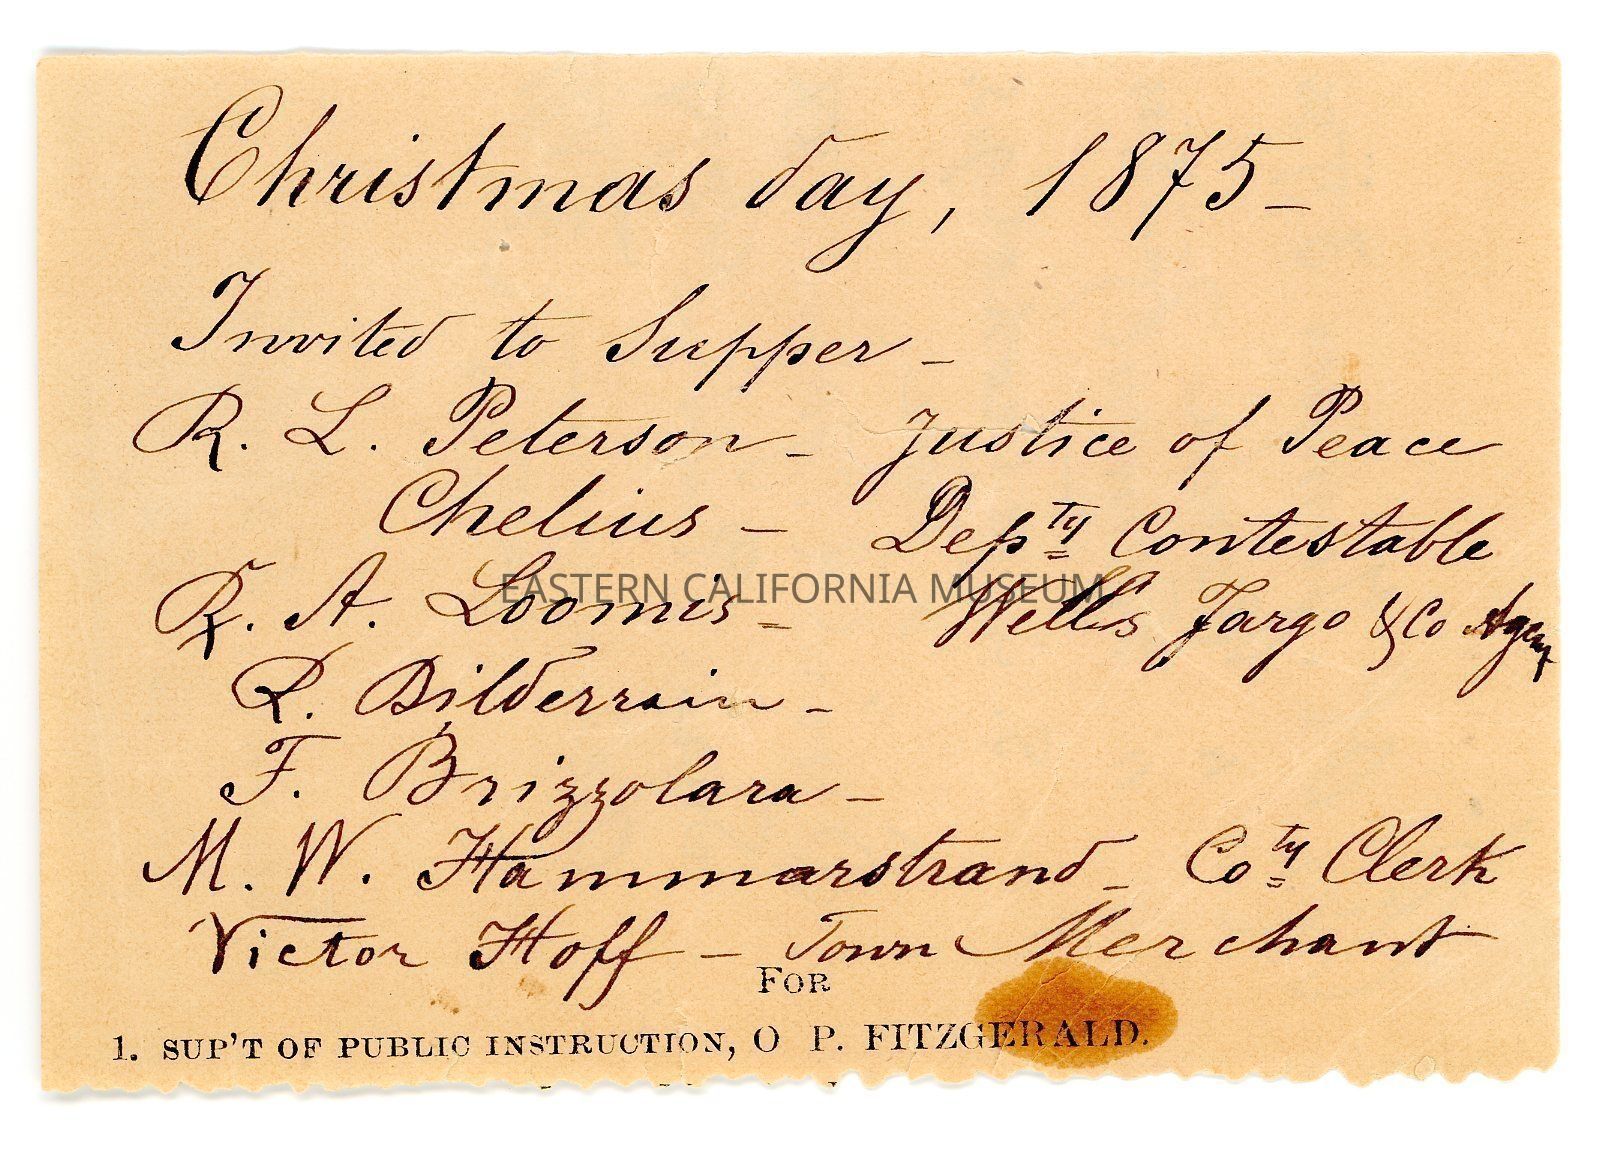 Christmas day, 1875 –
Invited to Supper –
R. L. Peterson – Justice of Peace
Chelius – Depty Contestable
R. A. Loomis – Wells Fargo & Co Agent
EASTERN CALIFORNIA MUSEUM
P. Bilderrain –
F. Brizzolara –
M. W. Hammarstrand – Coty Clerk
Victor Hoff – Town Merchant
FOR
1. SUP'T OF PUBLIC INSTRUCTION, O P. FITZGERALD.